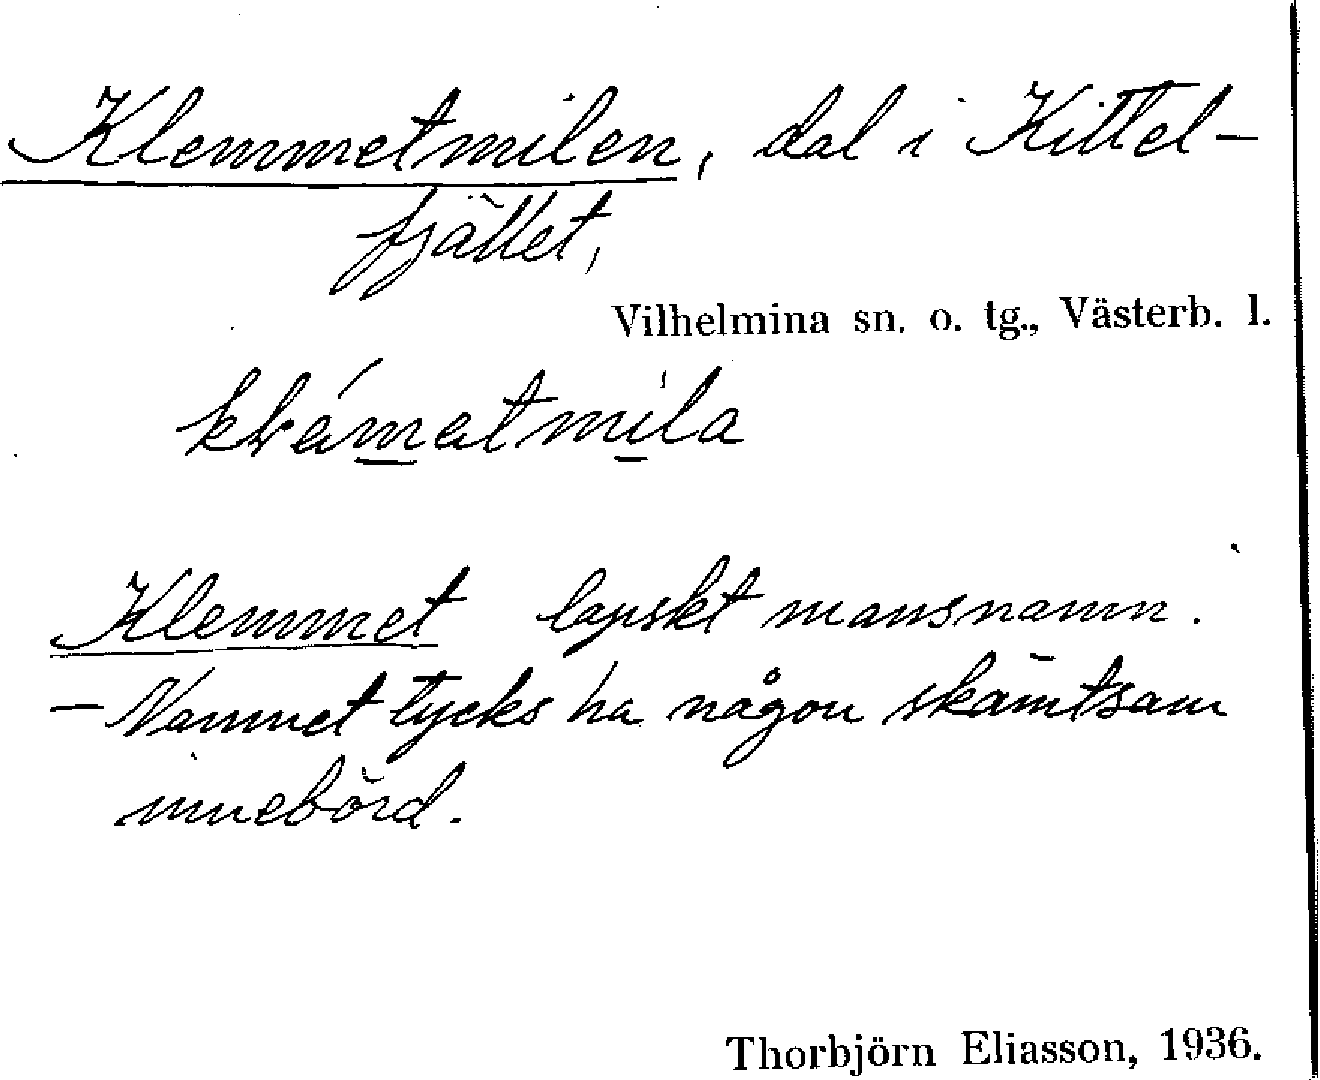 Klemmetmilen, dal i Kittel-
fjället,
Vilhelmina sn. o. tg., Västerb. l.
Klemmet lapskt mansnamn.
- Namnet tycks ha någon skämtsam
innebörd.
Thorbjörn Eliasson, 1936.